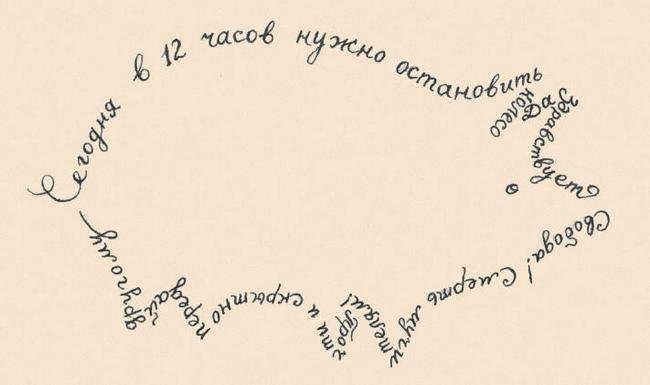 Сегодня в 12 часов нужно остановить
колесо
Да
здравствует
Свобода! Смерть мучи
телям!
Про
чти и скрытно
передай
другому